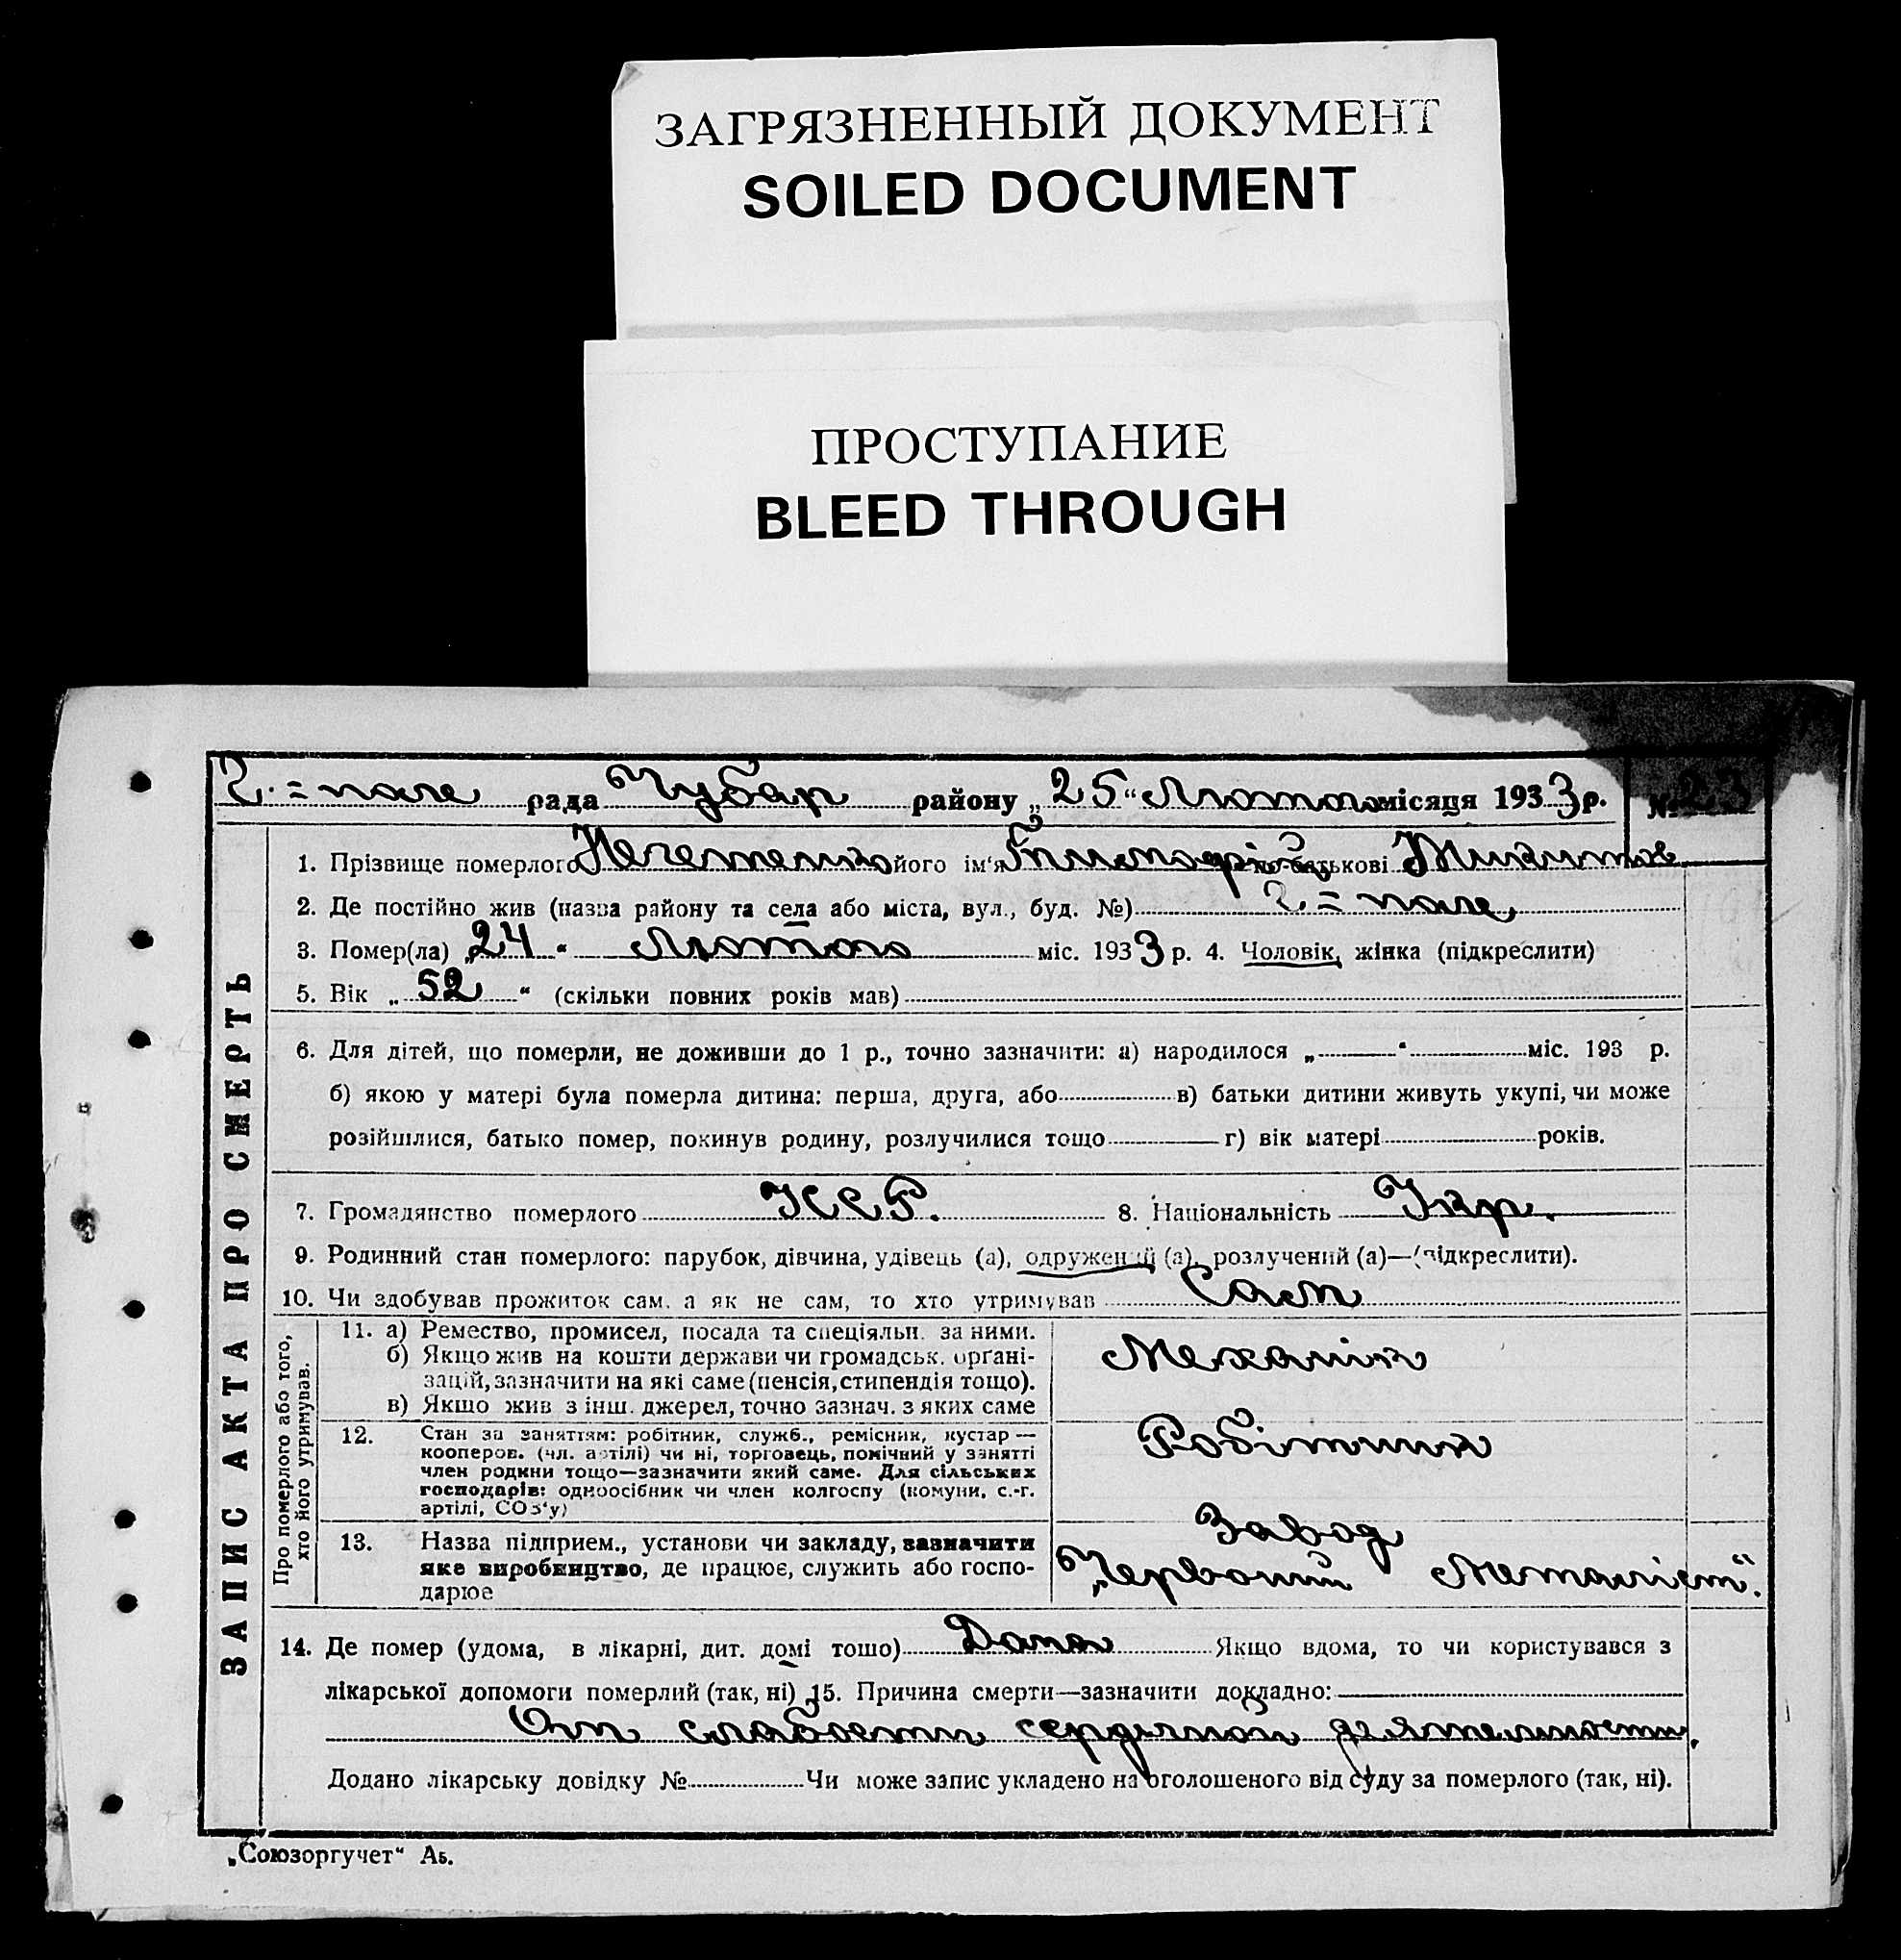 ЗАГРЯЗНЕННЫЙ ДОКУМЕНТ
SOILED DOCUMENT
ПРОСТУПАНИЕ
BLEED THROUGH
Г.=поле рада Чубар району „25“ Лютого місяця 1933 р. № 23
ЗАПИС АКТА ПРО СМЕРТЬ
1. Прізвище померлого його ім'я по батькові
2. Де постійно жив (назва району та села або міста, вул., буд. №) Г.=поле
3. Помер(ла) „24“ Лютого міс. 1933 р. 4. Чоловік, жінка (підкреслити)
5. Вік „52“ (скільки повних років мав)
6. Для дітей, що померли, не доживши до 1 р., точно зазначити: а) народилося „ “ міс. 193 р.
б) якою у матері була померла дитина: перша, друга, або в) батьки дитини живуть укупі, чи може
розійшлися, батько помер, покинув родину, розлучилися тощо г) вік матері років.
7. Громадянство померлого УСРР. 8. Національність Укр.
9. Родинний стан померлого: парубок, дівчина, удівець (а), одружений (а), розлучений (а)—(підкреслити).
10. Чи здобував прожиток сам, а як не сам, то хто утримував Сам
Про померлого або того,
хто його утримував.
11. а) Ремество, промисел, посада та спеціяльн. за ними.
б) Якщо жив на кошти держави чи громадськ. органі-
зацій, зазначити на які саме (пенсія, стипендія тощо).
в) Якщо жив з інш. джерел, точно зазнач. з яких саме
Механик
12. Стан за заняттям: робітник, служб., ремісник, кустар —
кооперов. (чл. артілі) чи ні, торговець, помічний у занятті
член родини тощо—зазначити який саме. Для сільських
господарів: одноосібник чи член колгоспу (комуни, с.-г.
артілі, СОЗ'у)
Робітник
13. Назва підприєм., установи чи закладу, зазначити
яке виробництво, де працює, служить або госпо-
дарює
Завод
„Червоний Металіст“.
14. Де помер (удома, в лікарні, дит. домі тощо) Дома Якщо вдома, то чи користувався з
лікарської допомоги померлий (так, ні) 15. Причина смерти—зазначити докладно:
От слабости сердечной деятельности.
Додано лікарську довідку № Чи може запис укладено на оголошеного від суду за померлого (так, ні).
„Союзоргучет“ А5.